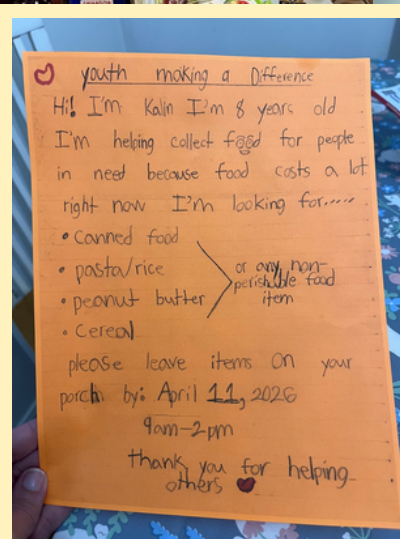 youth making a Difference
Hi! I'm Kalin I'm 8 years old
I'm helping collect food for people
in need because food costs a lot
right now I'm looking for.....
• Canned food
• pasta/rice
• peanut butter
• Cereal
or any non-
perishable food
item
please leave items on your
porch by: April 11, 2026
9am-2pm
thank you for helping
others